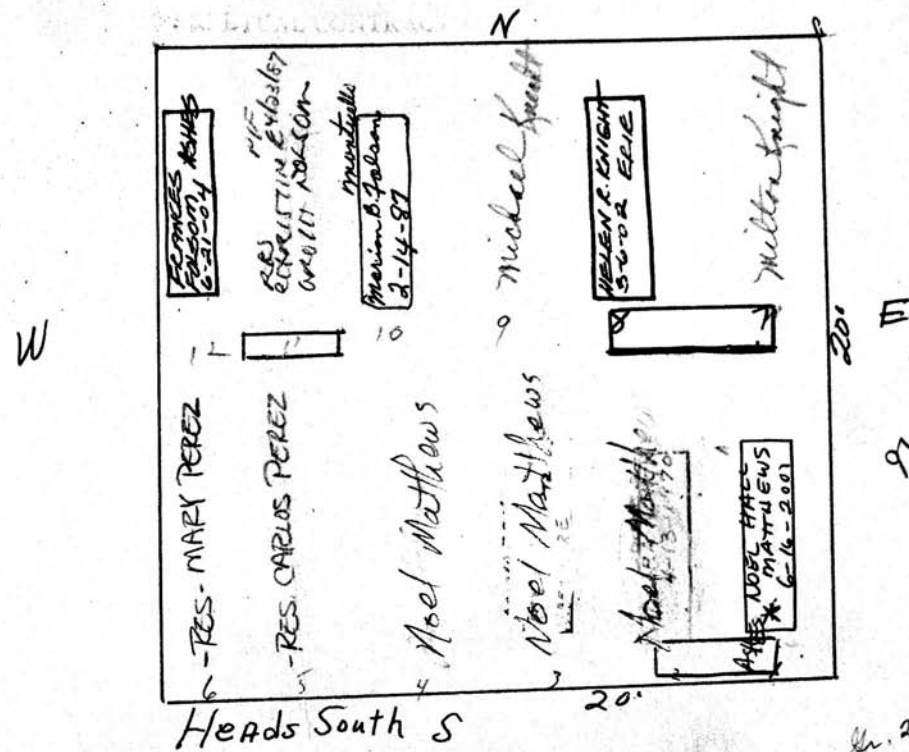 N
FRANCES ASHES
FOLSOM
6-21-04
RES
CHRISTINE 4/23/87
Monticello
Marion B. Folsom
2-14-87
Michael Knight
HELEN R. KNIGHT
3-6-02 ERIE
Milton Knight
W
12
11
10
9
8
7
20'
E
-RES- MARY PEREZ
-RES. CARLOS PEREZ
Noel Matthews
Noel Matthews
Noel Matthews
ASHES NOEL HALL
MATTHEWS
6-16-2001
6
5
4
3
20'
Heads South S